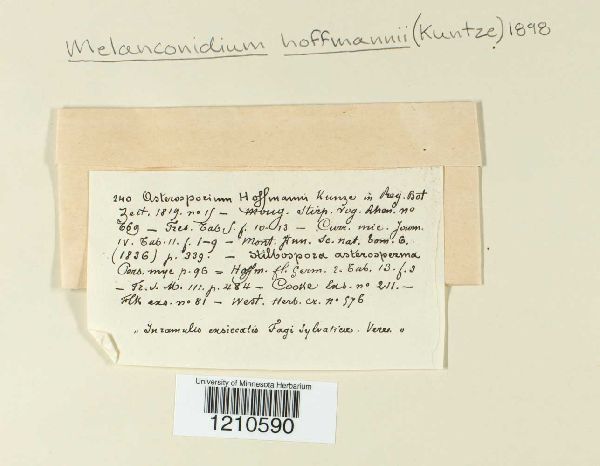 Melanconidium hoffmannii (Kuntze) 1898
240 Asterosporium Hoffmanni Kunze in Reg. Bot
Zeit. 1819. no 15 – Moug. Stirp. Vog. Rhen. no
669 – Fres. Tab. 5. f. 10-13 – Curr. mic. Journ.
IV. Tab. 11. f. 1-9 – Mont. Ann. Sc. nat. tom. 6.
(1836) p. 339. – Stilbospora asterosperma
Pers. myc p. 96 – Hoffm. fl. Germ. 2. Tab. 13. f. 3
– Fr. S. M. III. p. 484 – Cooke Exs. no 211. –
Flk exs. no 81 – West. Herb. cr. no 576
„ In ramulis exsiccatis Fagi Sylvaticae. Veres „
University of Minnesota Herbarium
1210590